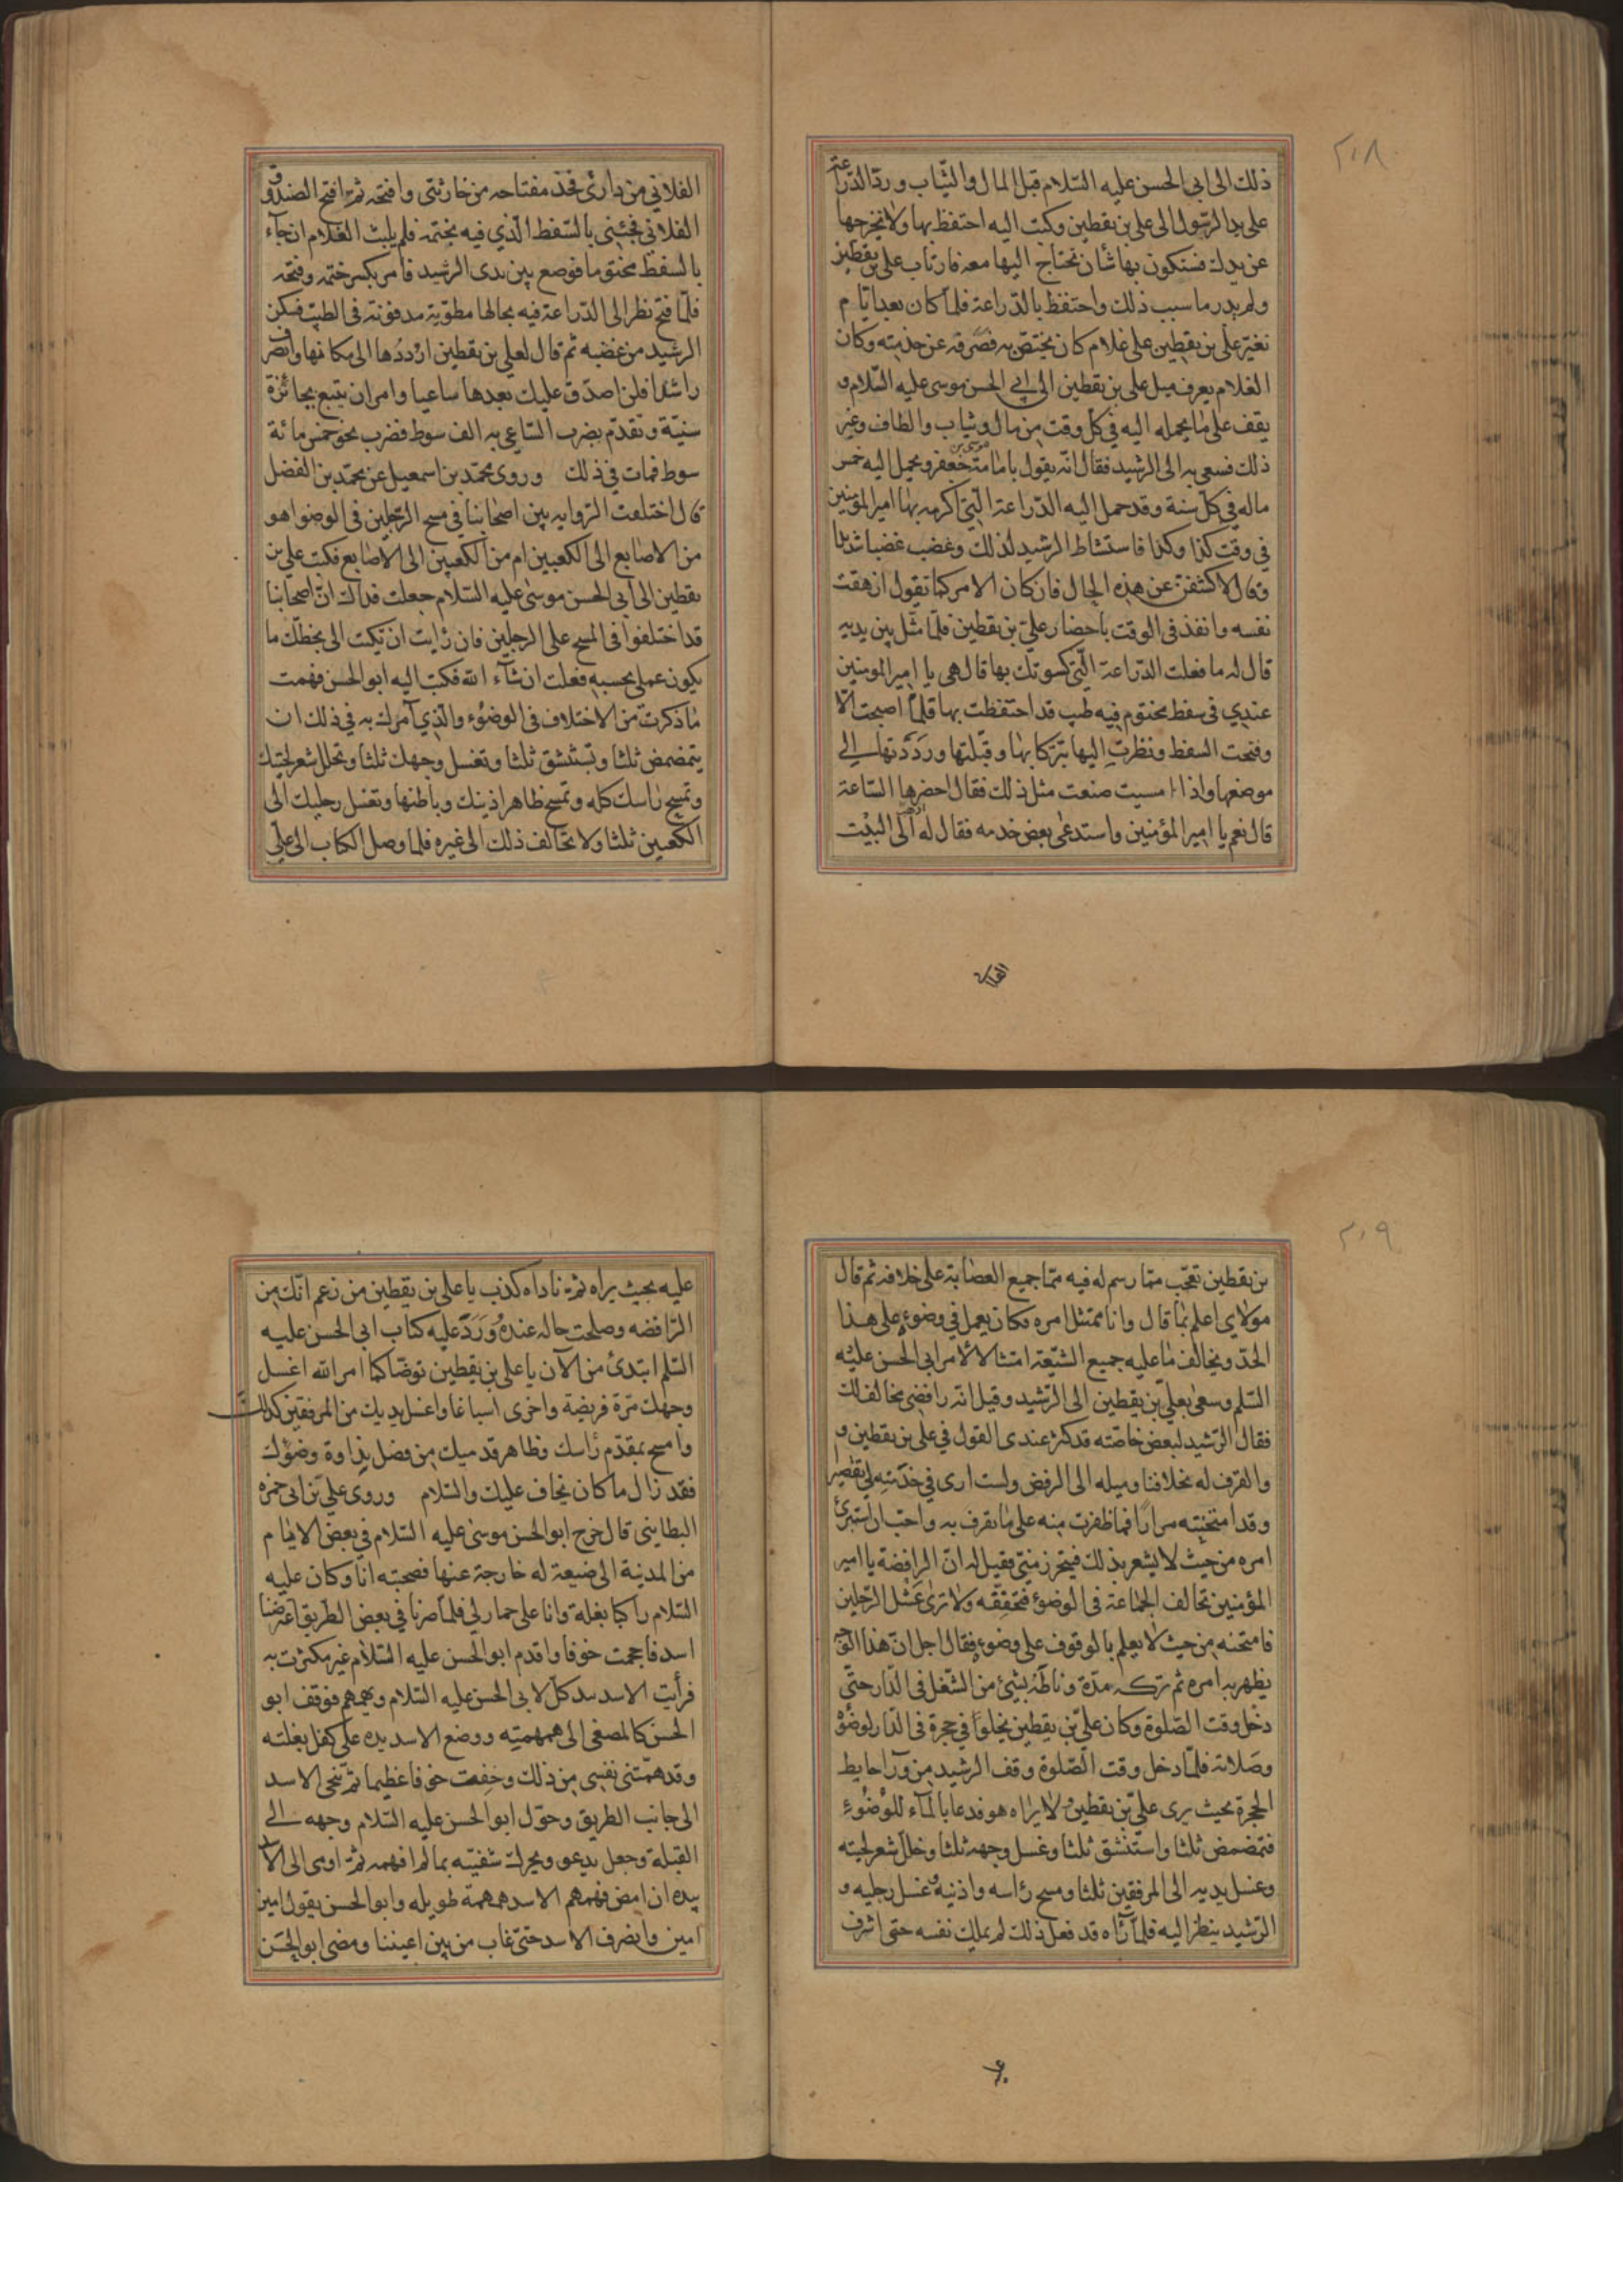 ٢٠٨
ذلك الى ابى الحسن عليه السّلام قبل المال والثّياب وردّ الدّراعة
على يد الرّسول الى على بن يقطين وكتب اليه احتفظ بها ولا تخرجها
عن يدك فستكون بها شان تحتاج اليها معه فارتاب على بن يقطين
ولم يدر ما سبب ذلك واحتفظ بالدّراعة فلمّا كان بعد ايّام
تغيّر على بن يقطين على غلام كان يختصّ به فصرفه عن خدمته وكان
الغلام يعرف ميل على بن يقطين الى ابي الحسن موسى عليه السّلام و
يقف على ما يحمله اليه في كلّ وقت من مال وثياب والطاف وغير
ذلك فسعى به الى الرشيد فقال انّه يقول بامامة موسى بن جعفر ويحمل اليه خمس
ماله في كلّ سنة وقد حمل اليه الدّراعة الّتي اكرمه بها امير المؤمنين
في وقت كذا وكذا فاستشاط الرشيد لذلك وغضب غضبا شديدا
وقال لاكشفنّ عن هذه الحال فان كان الامر كما تقول ازهقت
نفسه وانفذ فى الوقت باحضار علىّ بن يقطين فلمّا مثل بين يديه
قال له ما فعلت الدّراعة الّتي كسوتك بها قال هى يا امير المومنين
عندي في سفط مختوم فيه طيب قد احتفظت بها قلّما اصبحت الّا
وفتحت السفط ونظرت اليها تبرّكا بها وقبّلتها ورددتها الي
موضعها واذا امسيت صنعت مثل ذلك فقال احضرها السّاعة
قال نعم يا امير المؤمنين واستدعى بعض خدمه فقال له اذهب الى البيت
الفلاني
الفلاني من داري فخذ مفتاحه من خازنتي وافتحه ثمّ افتح الصندوق
الفلاني فجئني بالسّفط الّذي فيه بختمه فلم يلبث الغلام ان جآء
بالسفط مختوما فوضع بين يدى الرشيد فامر بكسر ختمه وفتحه
فلمّا فتح نظر الى الدّراعة فيه بحالها مطويّة مدفونة فى الطيب فسكن
الرشيد من غضبه ثم قال لعلي بن يقطين ارددها الى مكانها وانصرف
راشدا فلن اصدّق عليك بعدها ساعيا وامر ان يتبع بجائزة
سنيّة وتقدّم بضرب السّاعي به الف سوط فضرب نحو خمس مائة
سوط فمات في ذلك وروى محمّد بن اسمعيل عن محمّد بن الفضل
قال اختلفت الرّواية بين اصحابنا في مسح الرّجلين في الوضوا هو
من الاصابع الى الكعبين ام من الكعبين الى الاصابع فكتب علي بن
يقطين الى ابى الحسن موسى عليه السّلام جعلت فداك انّ اصحابنا
قد اختلفوا فى المسح على الرجلين فان رايت ان تكتب الى بخطّك ما
يكون عملي بحسبه فعلت ان شآء الله فكتب اليه ابو الحسن فهمت
ما ذكرت من الاختلاف فى الوضوء والّذي آمرك به في ذلك ان
يتمضمض ثلثا وتستنشق ثلثا وتغسل وجهك ثلثا وتخلل شعر لحيتك
وتمسح راسك كله وتمسح ظاهر اذنيك وباطنها وتغسل رجليك الى
الكعبين ثلثا ولا تخالف ذلك الى غيره فلمّا وصل الكتاب الى علىّ
٢٠٩
بن يقطين تعجّب ممّا رسم له فيه ممّا جميع العصابة على خلافه ثم قال
مولاي اعلم بما قال وانا ممتثل امره فكان يعمل في وضوءه على هذا
الحدّ ويخالف ما عليه جميع الشّيعة امتثالا لامر ابى الحسن عليه
السّلم وسعى بعليّ بن يقطين الى الرّشيد وقيل انّه رافضي مخالف لك
فقال الرّشيد لبعض خاصّته قد كثر عندى القول في على بن يقطين و
والقرف له بخلافنا وميله الى الرفض ولست ارى في خدمته لي تقصيرا
وقد امتحنته مرارا فما ظفرت منه على ما يقرف به واحبّ ان استبرئ
امره من حيث لا يشعر بذلك فيتحرز منّي فقيل له انّ الرافضة يا امير
المؤمنين تخالف الجماعة فى الوضوء فتخفّفه ولا ترى غسل الرّجلين
فامتحنه من حيث لا يعلم بالوقوف على وضوءه فقال اجل انّ هذا الوجه
يظهر به امره ثم تركه مدّة وناطه بشيئ من الشّغل فى الدّار حتّى
دخل وقت الصّلوة وكان علىّ بن يقطين يخلوا في حجرة فى الدّار لوضوء
وصلاته فلمّا دخل وقت الصّلوة وقف الرشيد من ورآء حايط
الحجرة بحيث يرى علىّ بن يقطين ولا يراه هو فدعا بالمآء للوضوء
فتمضمض ثلثا واستنشق ثلثا وغسل وجهه ثلثا وخلّل شعر لحيته
وغسل يديه الى المرفقين ثلثا ومسح راسه واذنيه وغسل رجليه و
الرّشيد ينظر اليه فلمّا رآه قد فعل ذلك لم يملك نفسه حتى اشرف
عليه بحيث يراه ثمّ ناداه كذب يا على بن يقطين من زعم انّك من
الرّافضه وصلحت حاله عنده وَرَدَ عليه كتاب ابى الحسن عليه
السّلم ابتدئ من الآن يا على بن يقطين توضّا كما امر الله اغسل
وجهك مرّة فريضة واخرى اسباغا واغسل يديك من المرفقين كذلك
وامسح بمقدّم راسك وظاهر قدميك من فضل نداوة وضوءك
فقد زال ما كان يخاف عليك والسّلام وروى علىّ بن ابى حمزه
البطايني قال خرج ابو الحسن موسى عليه السّلام في بعض الايّام
من المدينة الى ضيعة له خارجة عنها فصحبته انا وكان عليه
السّلام راكبا بغلة وانا على حمار لي فلمّا صرنا في بعض الطّريق اعترضنا
اسد فاحجمت خوفا واقدم ابو الحسن عليه السّلام غير مكترث به
فرأيت الاسد يتذلّل لابى الحسن عليه السّلام ويهمهم فوقف ابو
الحسن كالمصغى الى همهمته ووضع الاسد يده على كفل بغلته
وقد همّتني نفسى من ذلك وخفت خوفا عظيما ثمّ تنحّى الاسد
الى جانب الطريق وحوّل ابو الحسن عليه السّلام وجهه الي
القبلة وجعل يدعو ويحرّك شفتيه بما لم افهمه ثمّ اومى الى الاسد
بيده ان امض فهمهم الاسد همهمة طويله وابو الحسن يقول امين
امين وانصرف الاسد حتّى غاب من بين اعيننا ومضى ابو الحسن